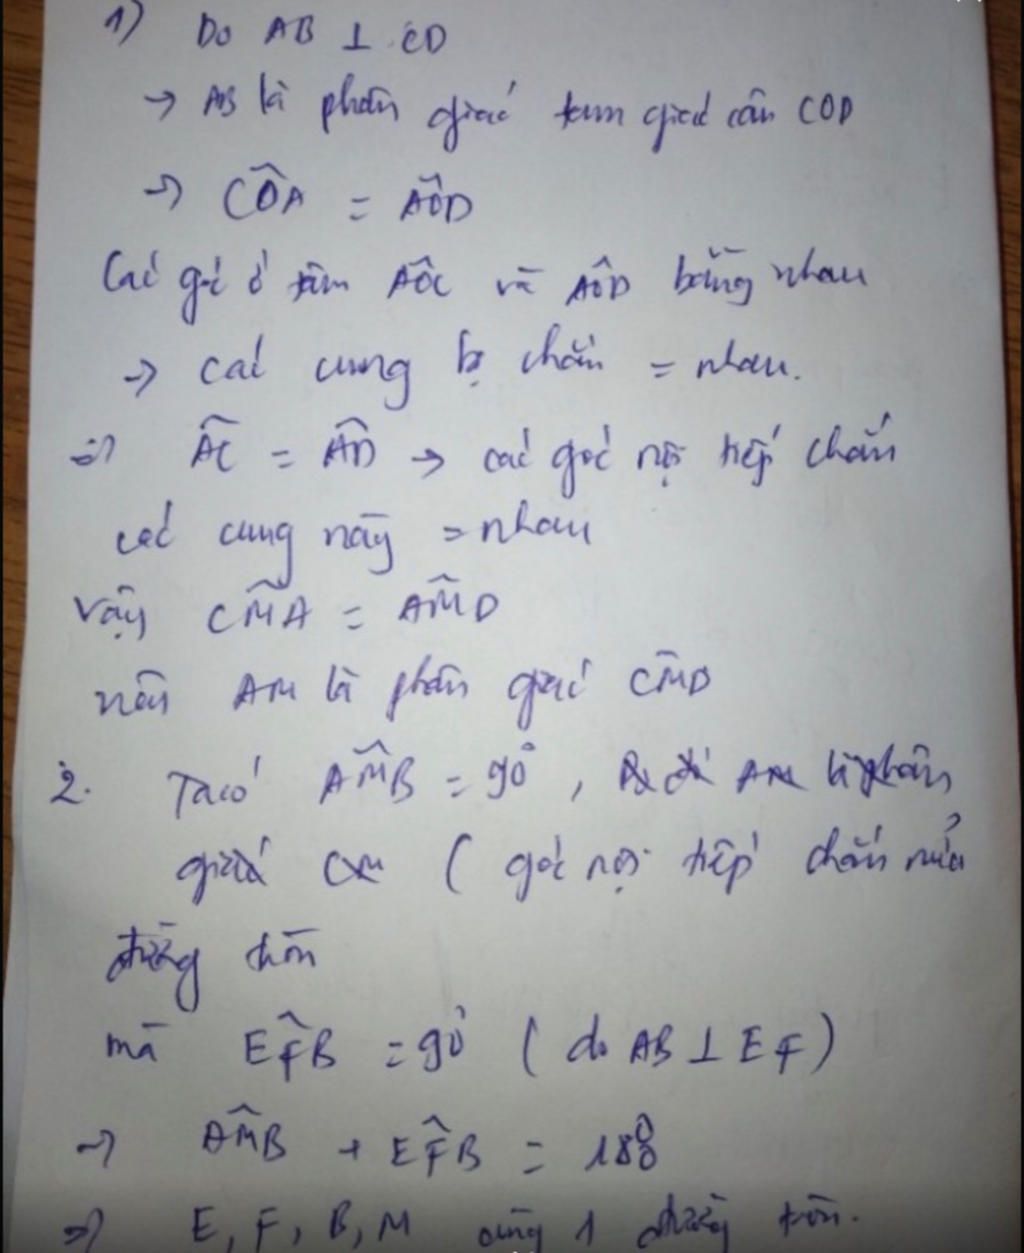 1) Do AB ⊥ CD
→ AB là phân giác tam giác cân COD
→ CÔA = AÔD
Các góc ở tâm AÔC và AÔD bằng nhau
→ các cung bị chắn = nhau.
=> AC = AD → các góc nội tiếp chắn
các cung này = nhau
Vậy CM̂A = AM̂D
nên AM là phân giác CM̂D
2. Ta có AM̂B = 90°, AM là phân
giác CM ( góc nội tiếp chắn nửa
đường tròn
mà EF̂B = 90° ( do AB ⊥ EF )
→ AM̂B + EF̂B = 180°
=> E, F, B, M cùng 1 đường tròn.